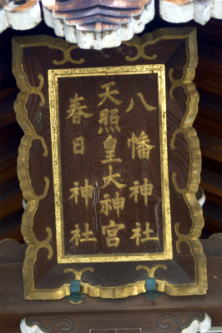 八幡神社
天照皇大神宮
春日神社